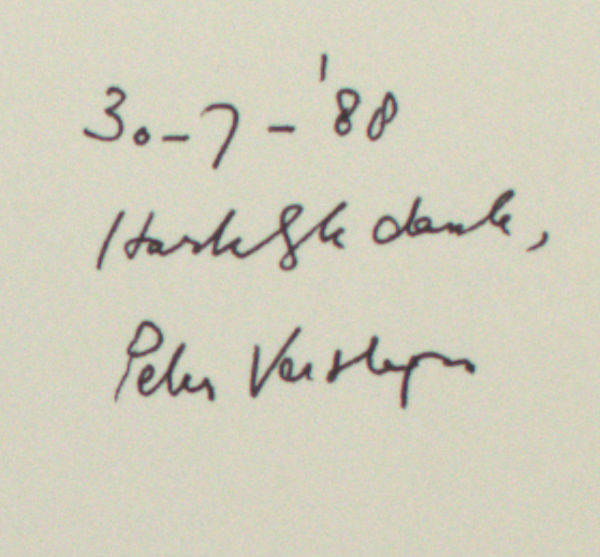 30-7-'88
Hartelijk dank,
Peter Verstegen